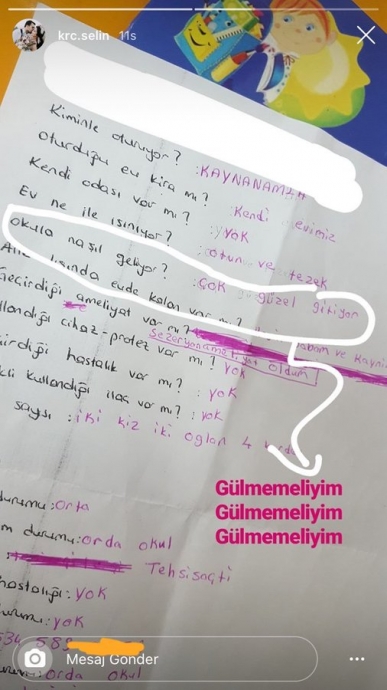 krc.selin 11s
Kiminle oturuyor? : KAYNANAMLA
Oturduğu ev kira mı? : Kendi evimiz
Kendi odası var mı? : YOK
Ev ne ile ısınıyor? : otun ve tezek
okula nasıl geliyor? : Çok güzel gitiyor
dışında evde kalan var mı?
Geçirdiği ameliyat var mı?
Sezeryon ameliyat oldum
llandığı cihaz-protez var mı? YOK
irdiği hastalık var mı? YOK
kli kullandığı ilaç var mı? : yok
sayısı : iki kız iki oğlan 4
Gülmemeliyim
Gülmemeliyim
Gülmemeliyim
durumu: Orta
m durumu: orda okul
Tehsisaçti
hastalığı: yok
yok
Mesaj Gönder
orda okul